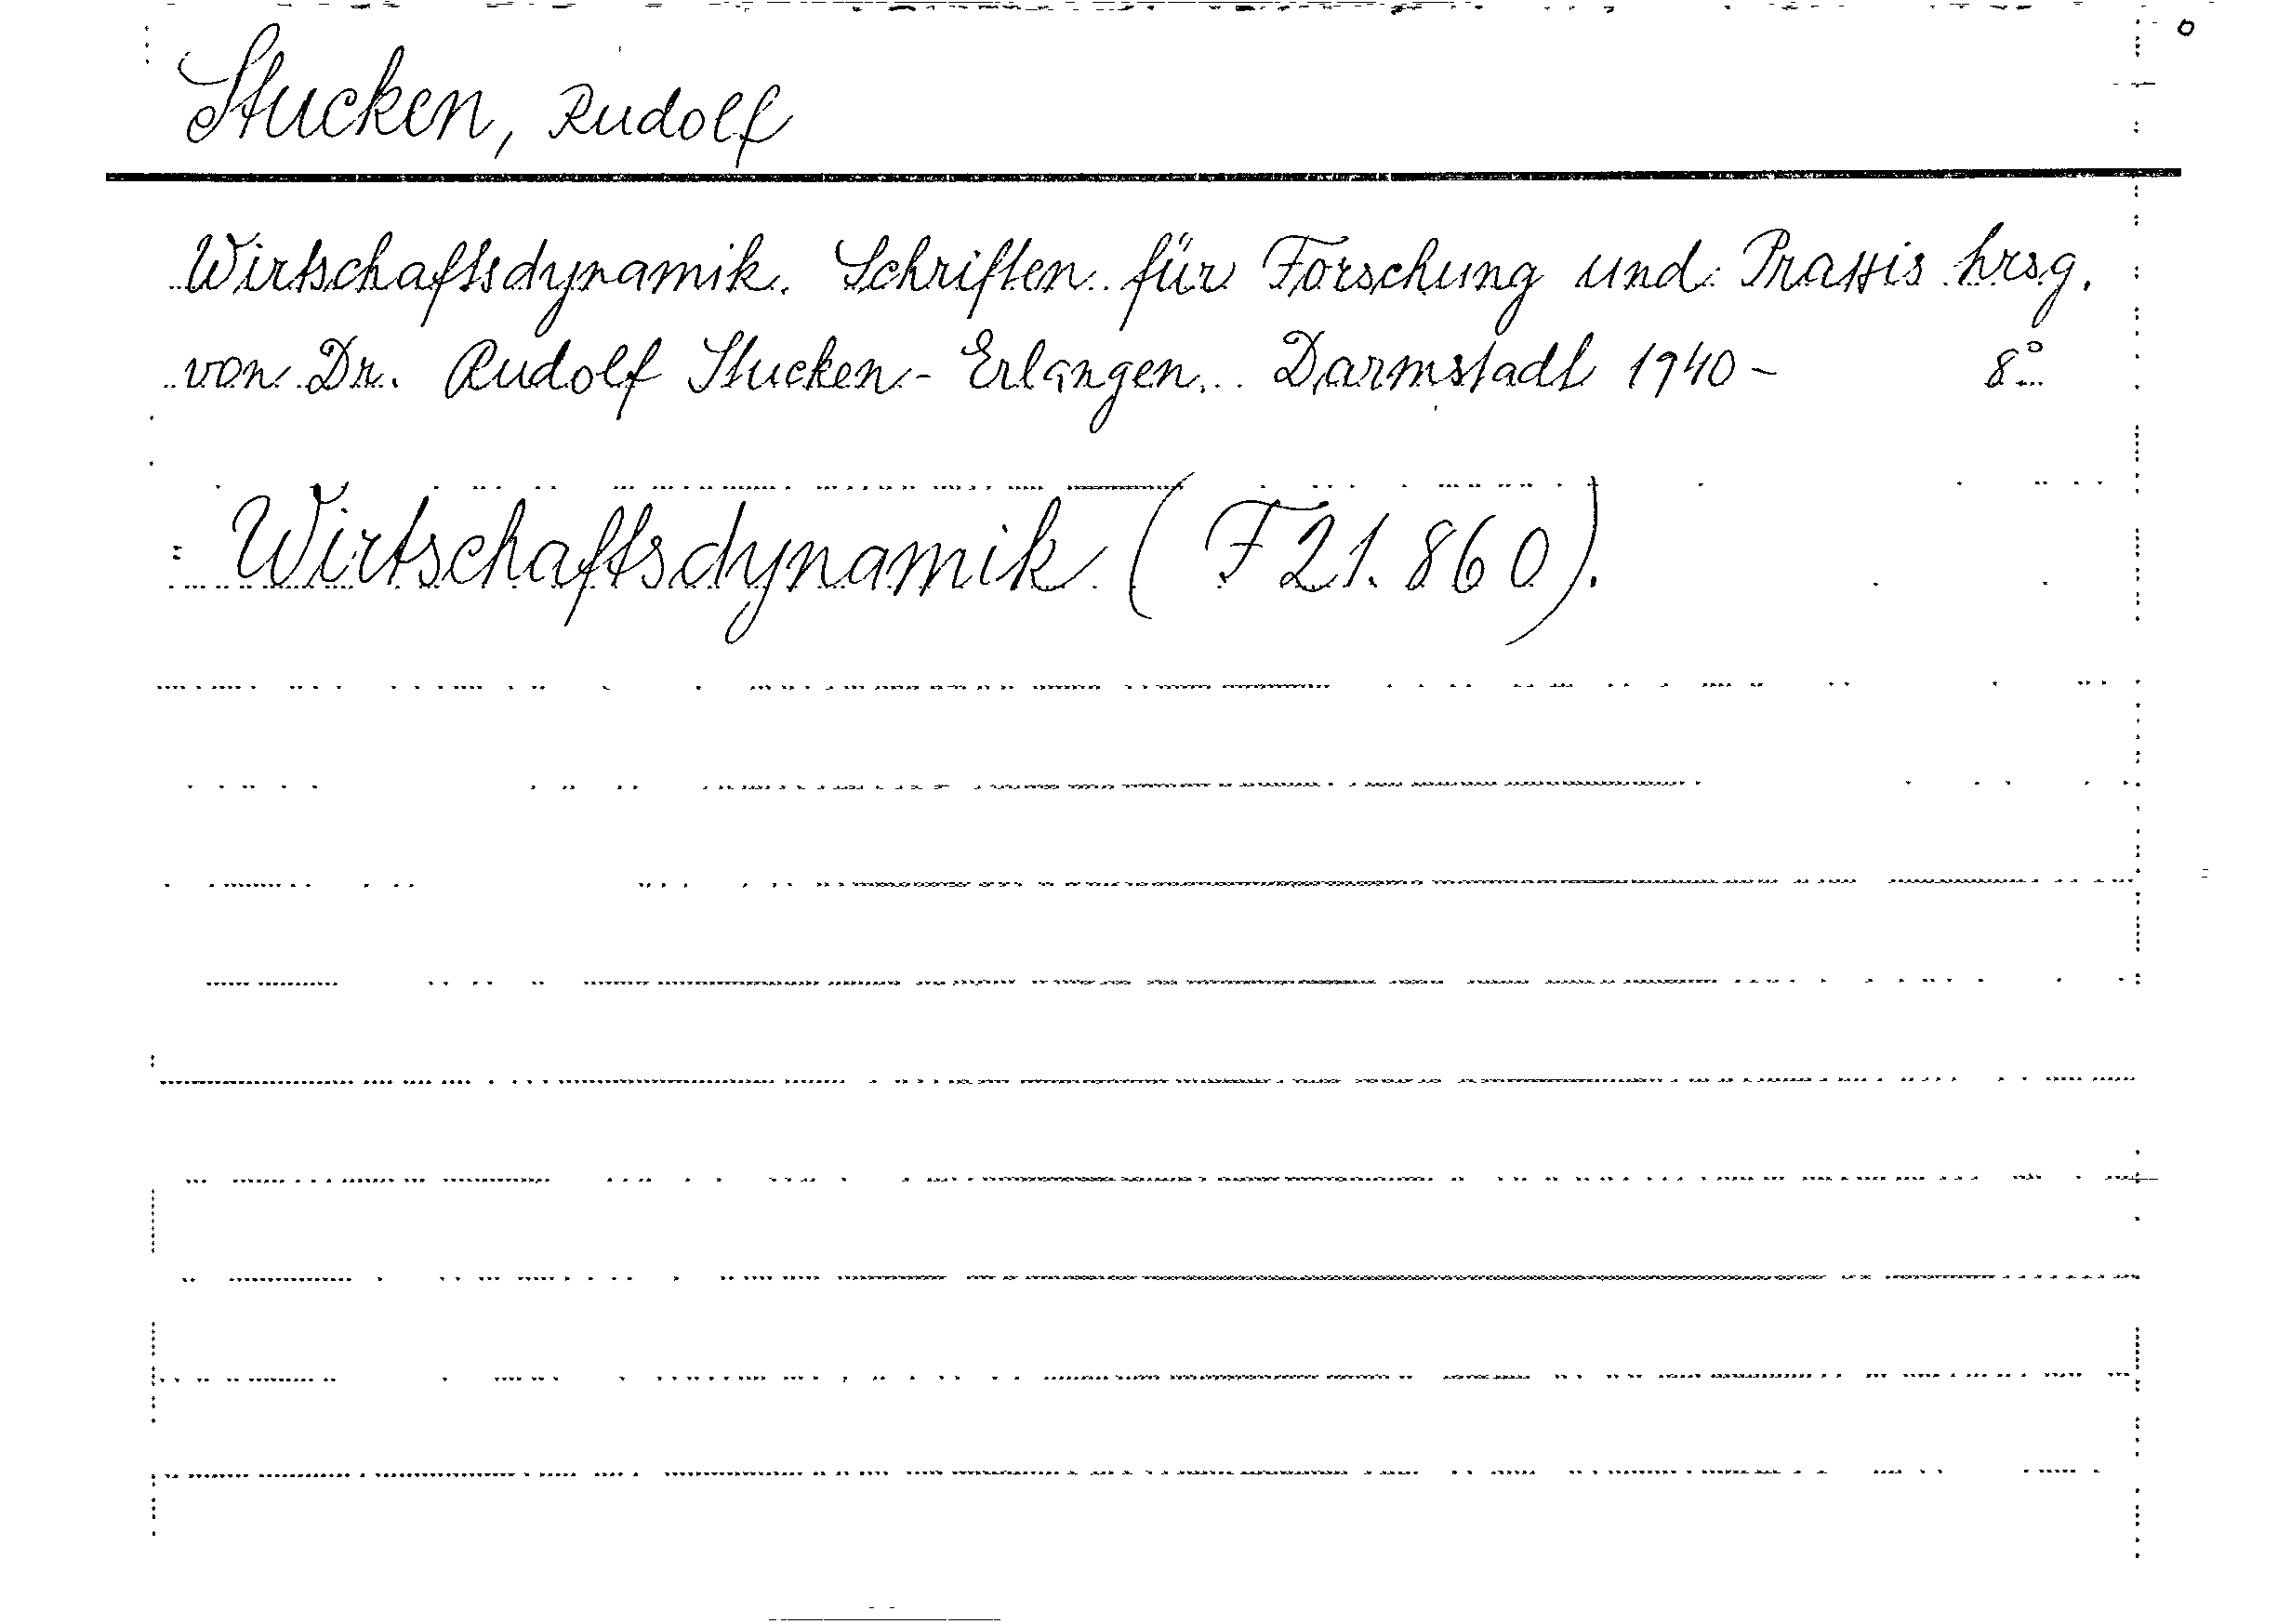 Stucken, Rudolf
Wirtschaftsdynamik. Schriften für Forschung und Praxis hrsg.
von Dr. Rudolf Stucken - Erlangen. Darmstadt 1940 - 8°
Wirtschaftsdynamik (F 21.860).